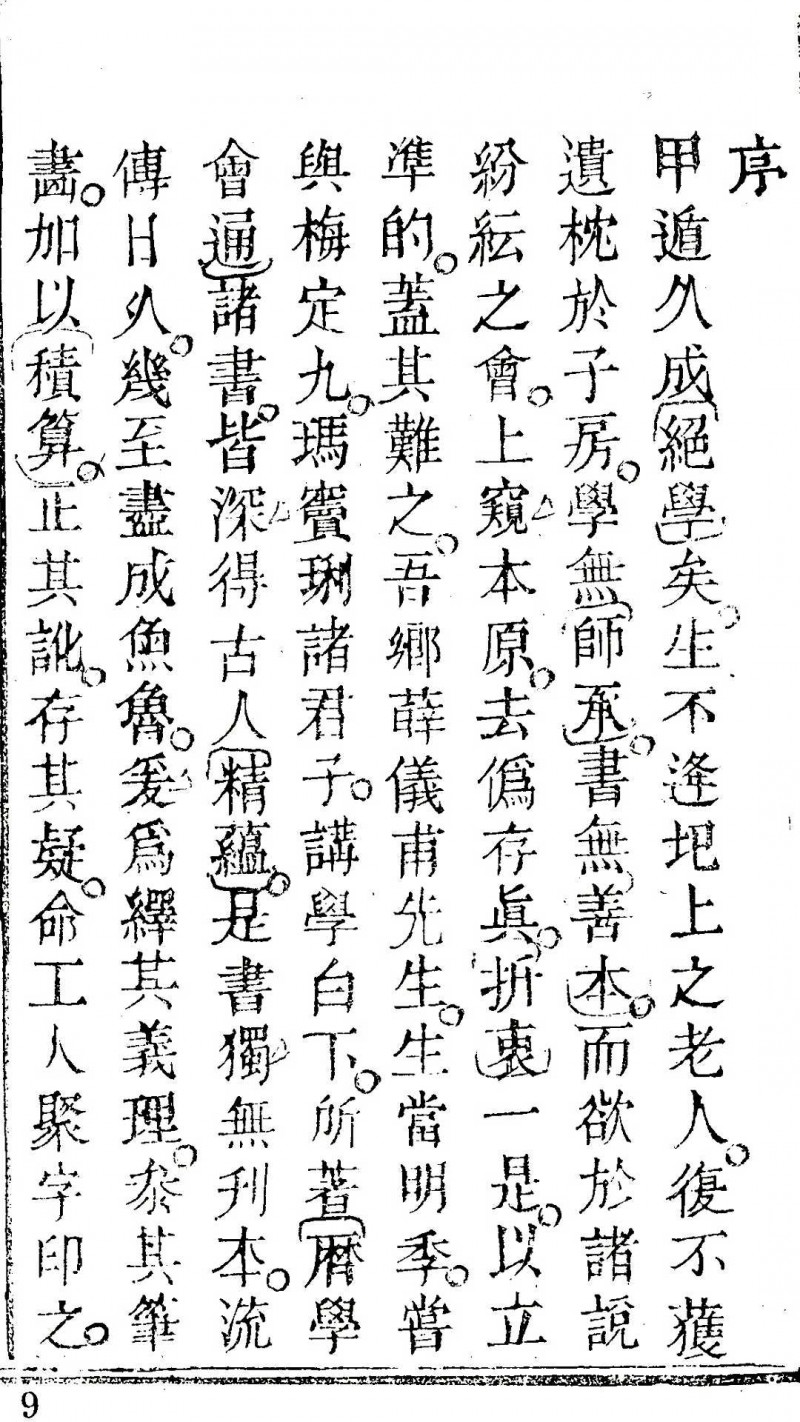 序
甲遁久成絕學矣。生不逢圯上之老人。復不獲
遺枕於子房。學無師承。書無善本。而欲於諸說
紛紜之會。上窺本原。去僞存眞。折衷一是。以立
準的。蓋其難之。吾鄉薛儀甫先生。生當明季。嘗
與梅定九。瑪竇琍諸君子。講學白下。所著曆學
會通諸書。皆深得古人精蘊。是書獨無刋本。流
傳日久。幾至盡成魚魯。爰爲繹其義理。叅其筆
畵。加以積算。正其訛。存其疑。命工人聚字印之。
9